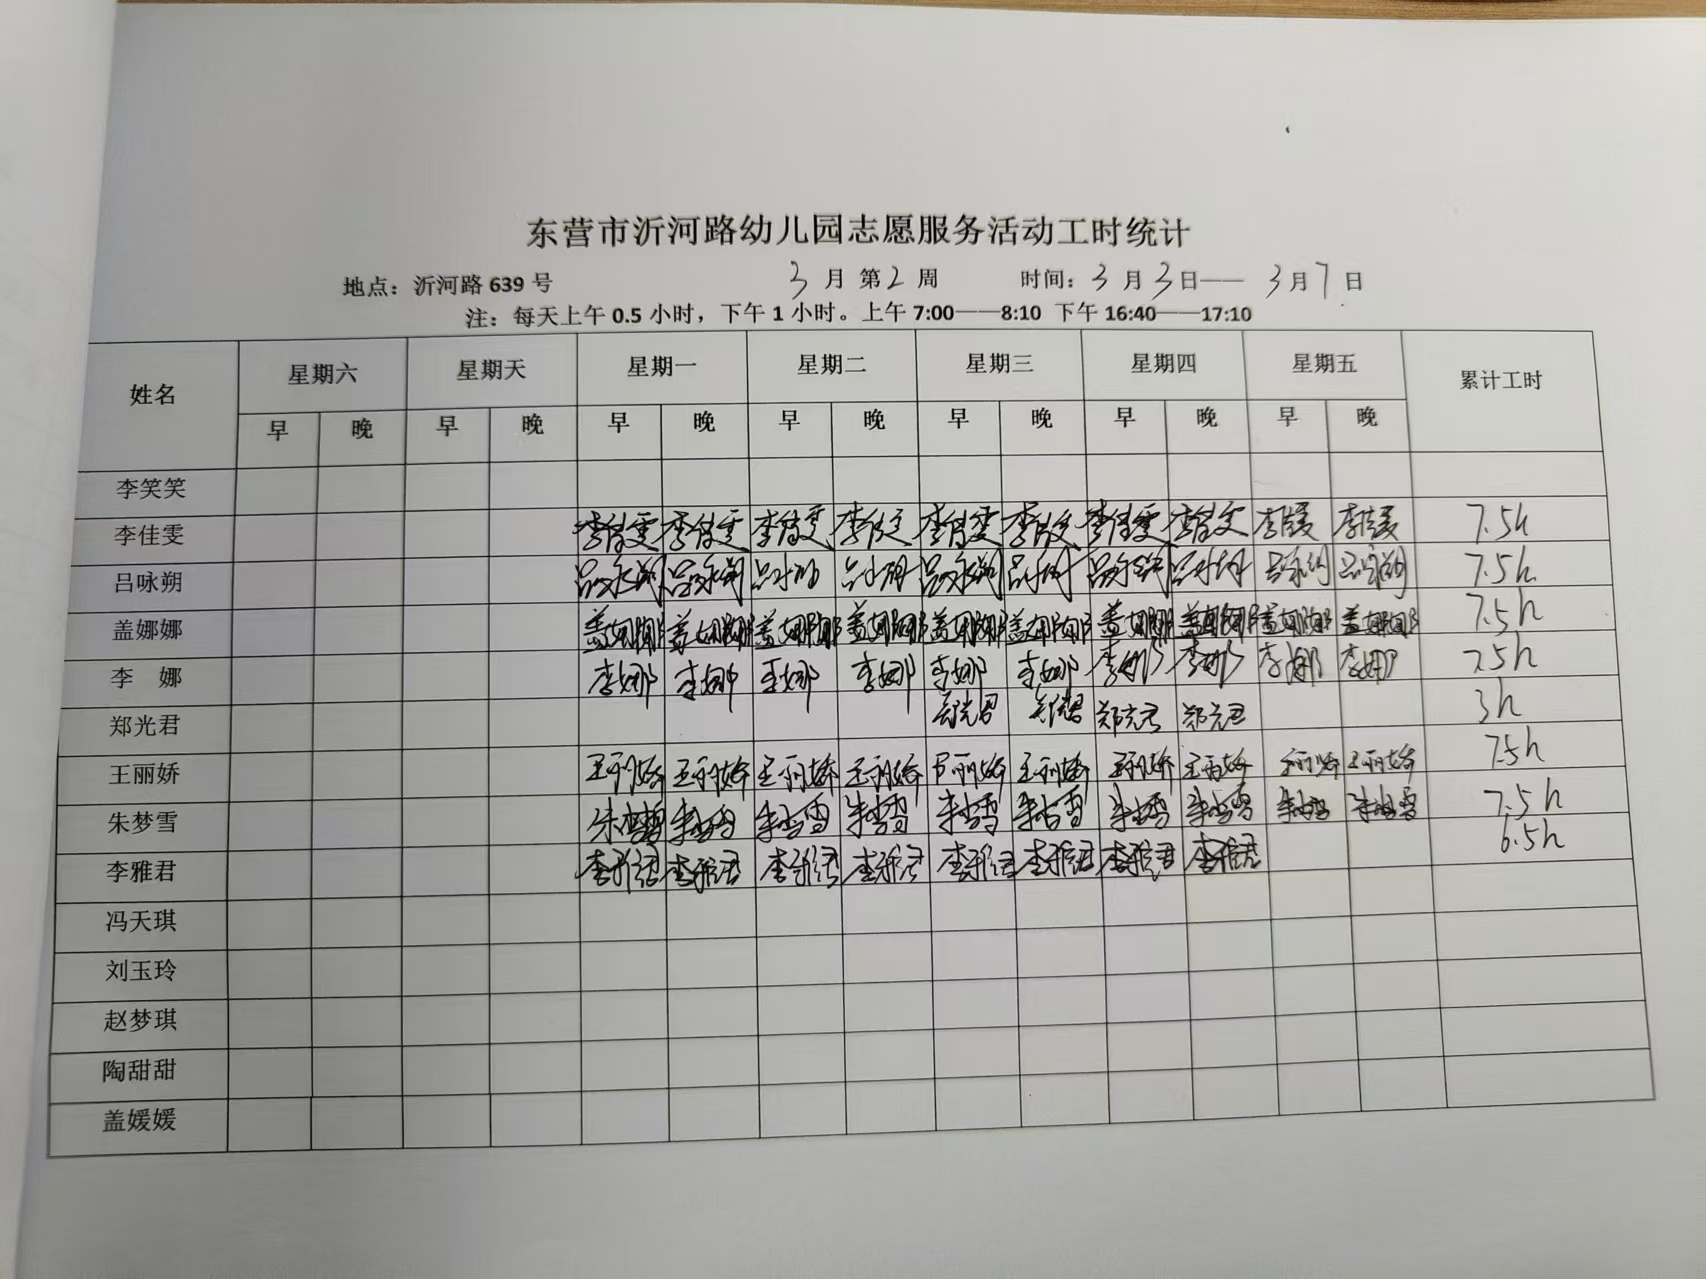 东营市沂河路幼儿园志愿服务活动工时统计
地点：沂河路 639 号 3 月 第 2 周 时间：3 月 3 日—— 3 月 7 日
注：每天上午 0.5 小时，下午 1 小时。上午 7:00——8:10 下午 16:40——17:10
姓名 星期六 星期天 星期一 星期二 星期三 星期四 星期五 累计工时
早 晚 早 晚 早 晚 早 晚 早 晚 早 晚 早 晚
李笑笑
李佳雯 李佳雯 李佳雯 李佳雯 李佳文 李佳雯 李佳文 李佳雯 李佳文 7.5h
吕咏朔 吕咏朔 吕咏朔 7.5h
盖娜娜 盖娜娜 盖娜娜 盖娜娜 盖娜娜 盖娜娜 盖娜娜 盖娜娜 盖娜娜 盖娜娜 盖娜娜 7.5h
李 娜 李娜 李娜 李娜 李娜 李娜 李娜 李娜 李娜 李娜 李娜 7.5h
郑光君 郑光君 郑光君 郑光君 郑光君 3h
王丽娇 王丽娇 王丽娇 王丽娇 王丽娇 王丽娇 王丽娇 王丽娇 王丽娇 王丽娇 王丽娇 7.5h
朱梦雪 朱梦雪 朱梦雪 朱梦雪 朱梦雪 朱梦雪 朱梦雪 朱梦雪 朱梦雪 朱梦雪 朱梦雪 7.5h
李雅君 李雅君 李雅君 李雅君 李雅君 李雅君 李雅君 李雅君 李雅君 6.5h
冯天琪
刘玉玲
赵梦琪
陶甜甜
盖媛媛